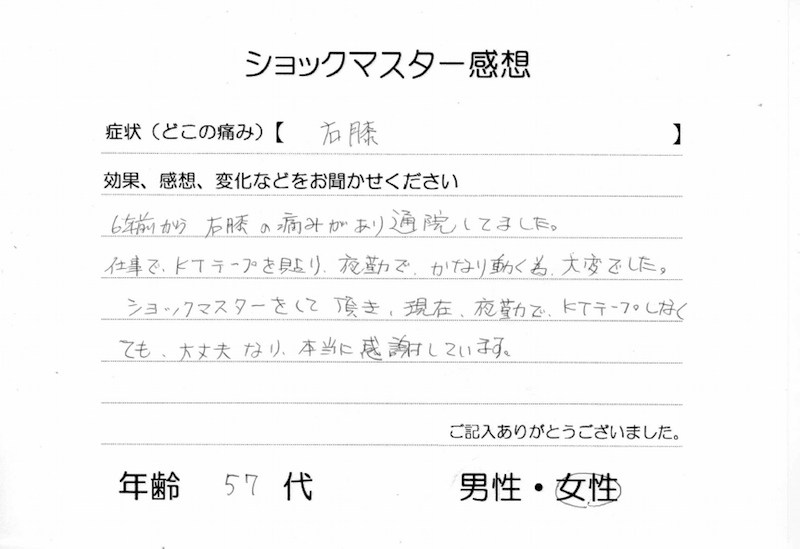 ショックマスター感想
症状（どこの痛み）【 右膝 】
効果、感想、変化などをお聞かせください
6年前から 右膝の痛みがあり通院してました。
仕事で、KTテープを貼り、夜勤で、かなり動く為、大変でした。
ショックマスターをして頂き、現在、夜勤で、KTテープしなく
ても、大丈夫なり、本当に感謝しています。
ご記入ありがとうございました。
年齢 57 代 男性・女性